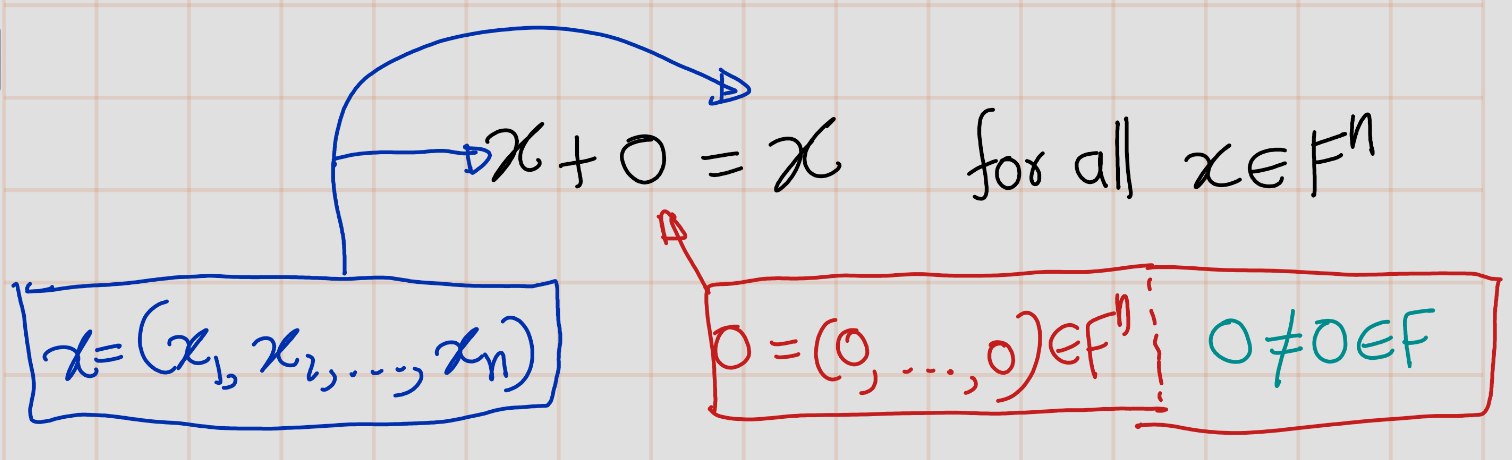 x + 0 = x for all x ∈ Fⁿ
x = (x₁, x₂, ..., xₙ)
0 = (0, ..., 0) ∈ Fⁿ
0 ≠ 0 ∈ F